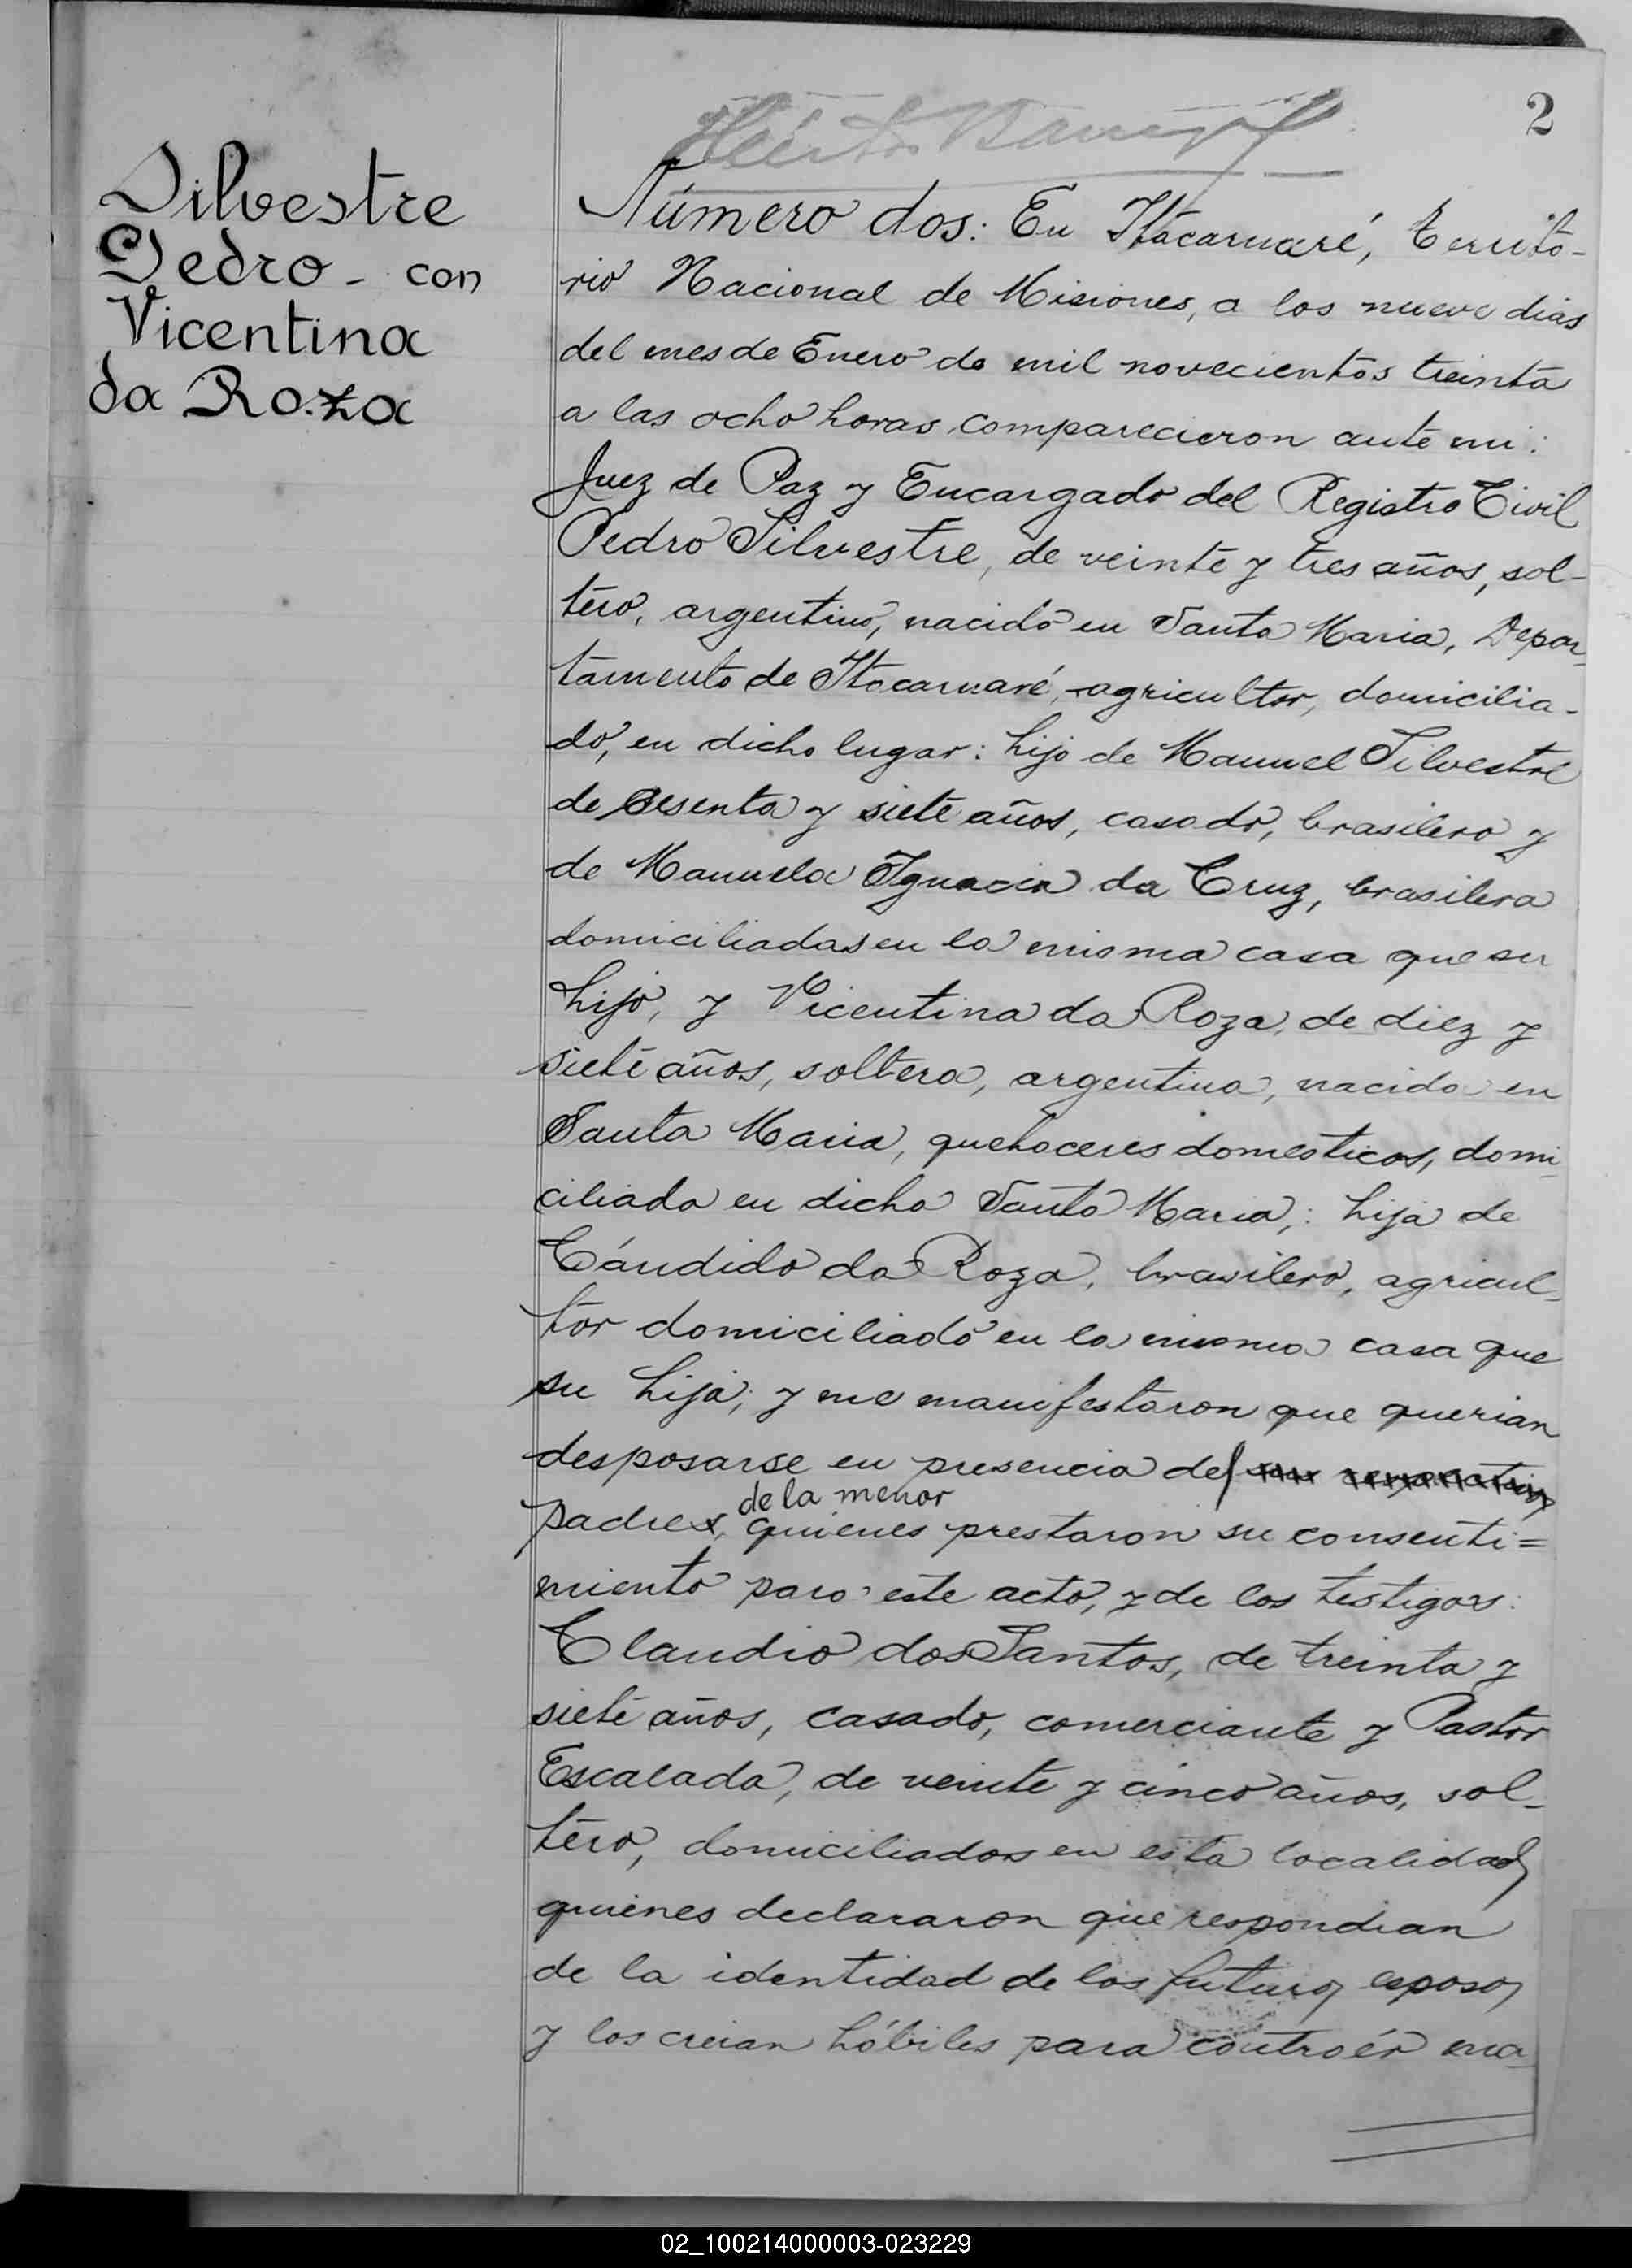 2
Silvestre
Pedro - con
Vicentina
da Roza
Número dos: En Itacaruaré, Territo-
rio Nacional de Misiones, a los nueve dias
del mes de Enero de mil novecientos treinta
a las ocho horas comparecieron ante mi:
Juez de Paz y Encargado del Registro Civil
Pedro Silvestre, de veinte y tres años, sol-
tero, argentino, nacido en Santa Maria, Depar-
tamento de Itacaruaré, agricultor, domicilia-
do, en dicho lugar: hijo de Manuel Silvestre
de sesenta y siete años, casado, brasilero y
de Manuela Ignacia da Cruz, brasilera
domiciliados en la misma casa que su
hijo, y Vicentina da Roza, de diez y
siete años, soltera, argentina, nacida en
Santa Maria, quehaceres domesticos, domi-
ciliada en dicho Santa Maria,: hija de
Cándido da Roza, brasilero, agricul-
tor domiciliado en la misma casa que
su hija; y me manifestaron que querian
desposarse en presencia del
de la menor
padres, quienes prestaron su consenti=
miento para este acto, y de los testigos:
Claudio dos Santos, de treinta y
siete años, casado, comerciante y Pastor
Escalada, de veinte y cinco años, sol-
tero, domiciliados en esta localidad
quienes declararon que respondian
de la identidad de los futuros esposos
y los creian hábiles para contraér ma-
02_100214000003-023229